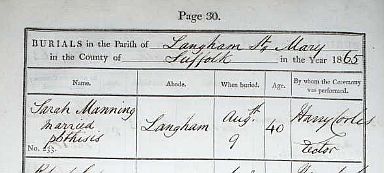 Page 30.
BURIALS in the Parish of Langham St Mary
in the County of Suffolk in the Year 1865
Name. Abode. When buried. Age. By whom the Ceremony was performed.
Sarah Manning
married
phthisis
No.
Langham
Augt
9
40
Harry